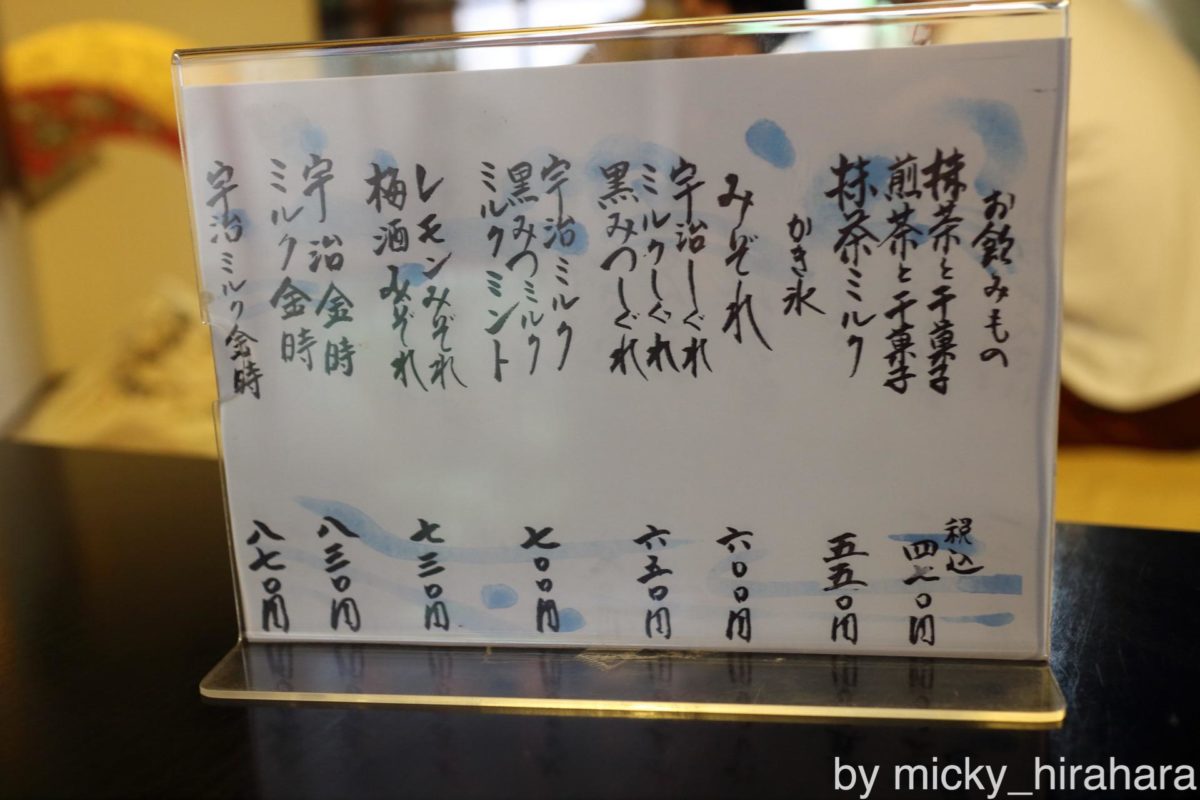 お飲みもの
抹茶と干菓子
煎茶と干菓子
税込
四七〇円
抹茶ミルク
五五〇円
かき氷
みぞれ
六〇〇円
宇治しぐれ
ミルクしぐれ
黒みつしぐれ
六五〇円
宇治ミルク
黒みつミルク
ミルクミント
七〇〇円
レモンみぞれ
梅酒みぞれ
七三〇円
宇治金時
ミルク金時
八三〇円
宇治ミルク金時
八七〇円
by micky_hirahara